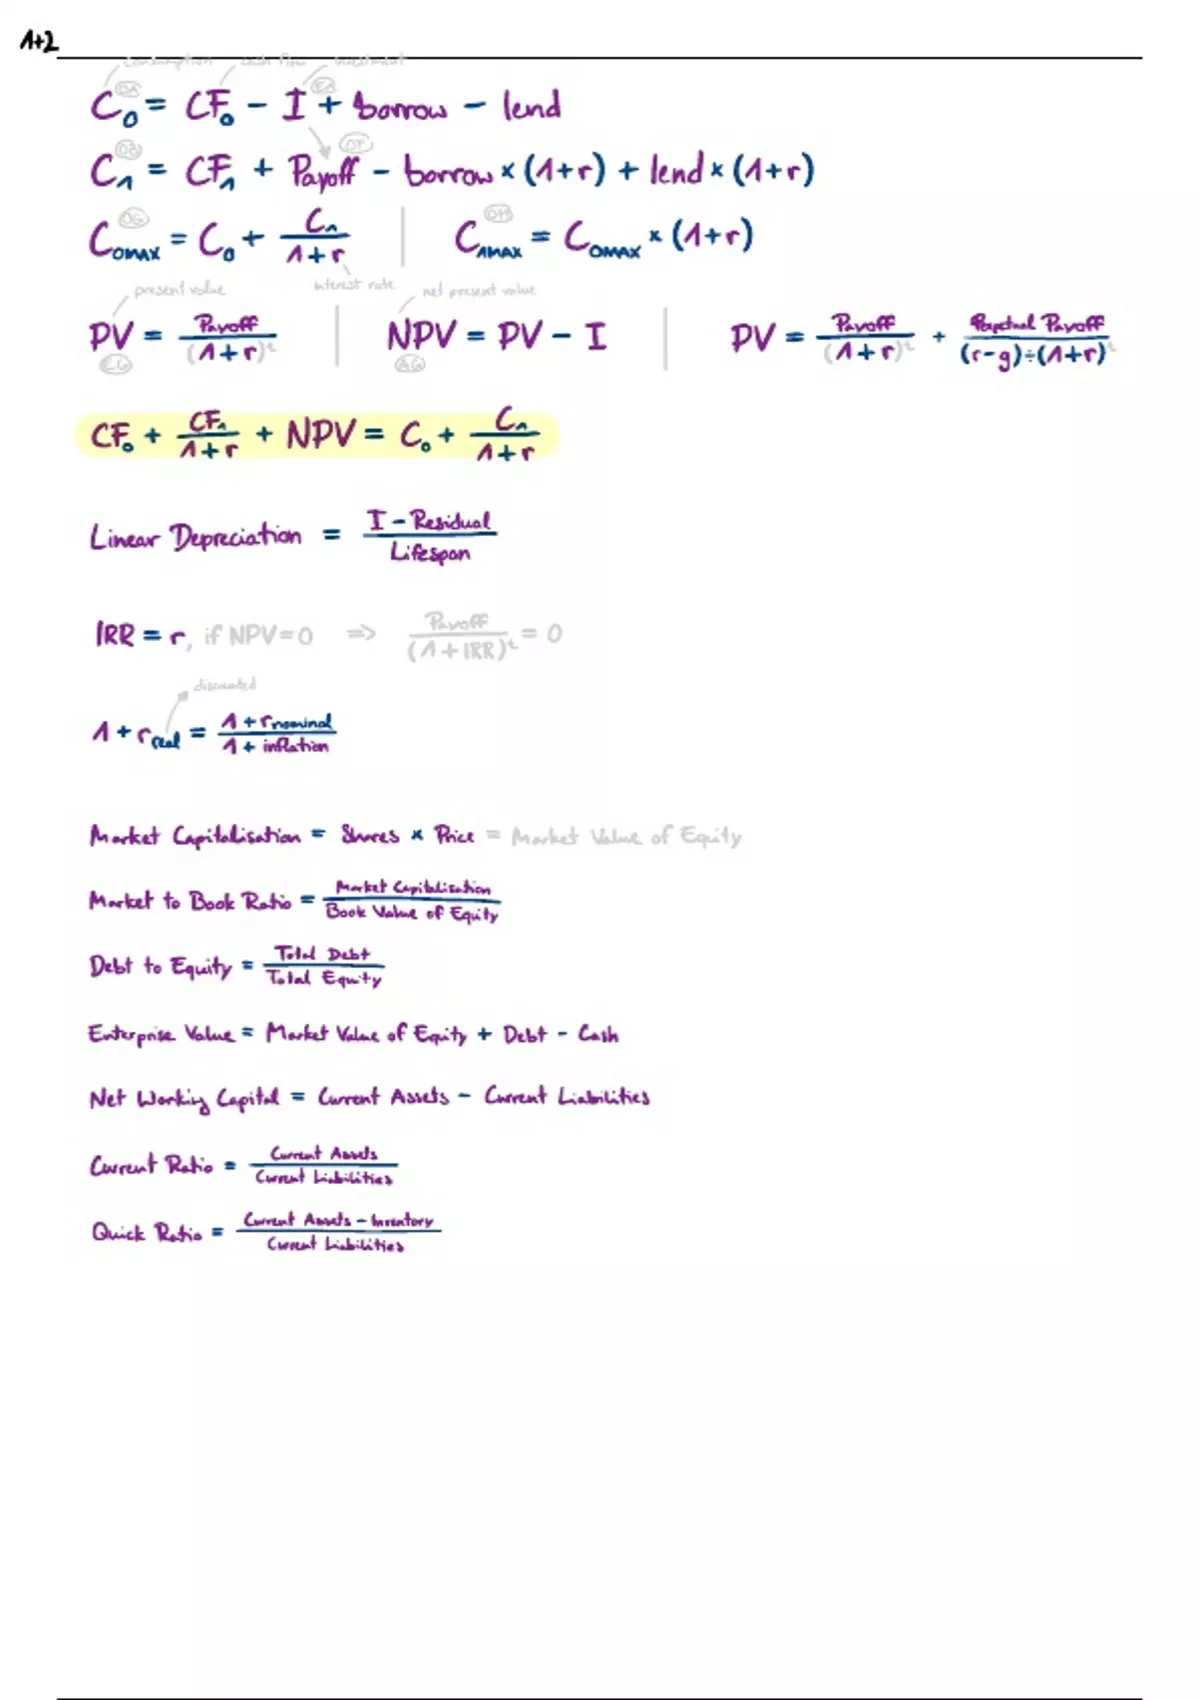 1+2
consumption cash flow investment
C₀ = CF₀ - I + borrow - lend
C₁ = CF₁ + Payoff - borrow × (1+r) + lend × (1+r)
C₀MAX = C₀ + C₁ / 1+r | C₁MAX = C₀MAX × (1+r)
present value interest rate net present value
PV = Payoff / (1+r)ᵗ | NPV = PV - I | PV = Payoff / (1+r)ᵗ + Perpetual Payoff / (r-g)÷(1+r)ᵗ
CF₀ + CF₁ / 1+r + NPV = C₀ + C₁ / 1+r
Linear Depreciation = I - Residual / Lifespan
IRR = r, if NPV=0 => Payoff / (1+IRR)ᵗ = 0
discounted
1 + r real = 1 + r nominal / 1 + inflation
Market Capitalisation = Shares × Price = Market Value of Equity
Market to Book Ratio = Market Capitalisation / Book Value of Equity
Debt to Equity = Total Debt / Total Equity
Enterprise Value = Market Value of Equity + Debt - Cash
Net Working Capital = Current Assets - Current Liabilities
Current Ratio = Current Assets / Current Liabilities
Quick Ratio = Current Assets - Inventory / Current Liabilities